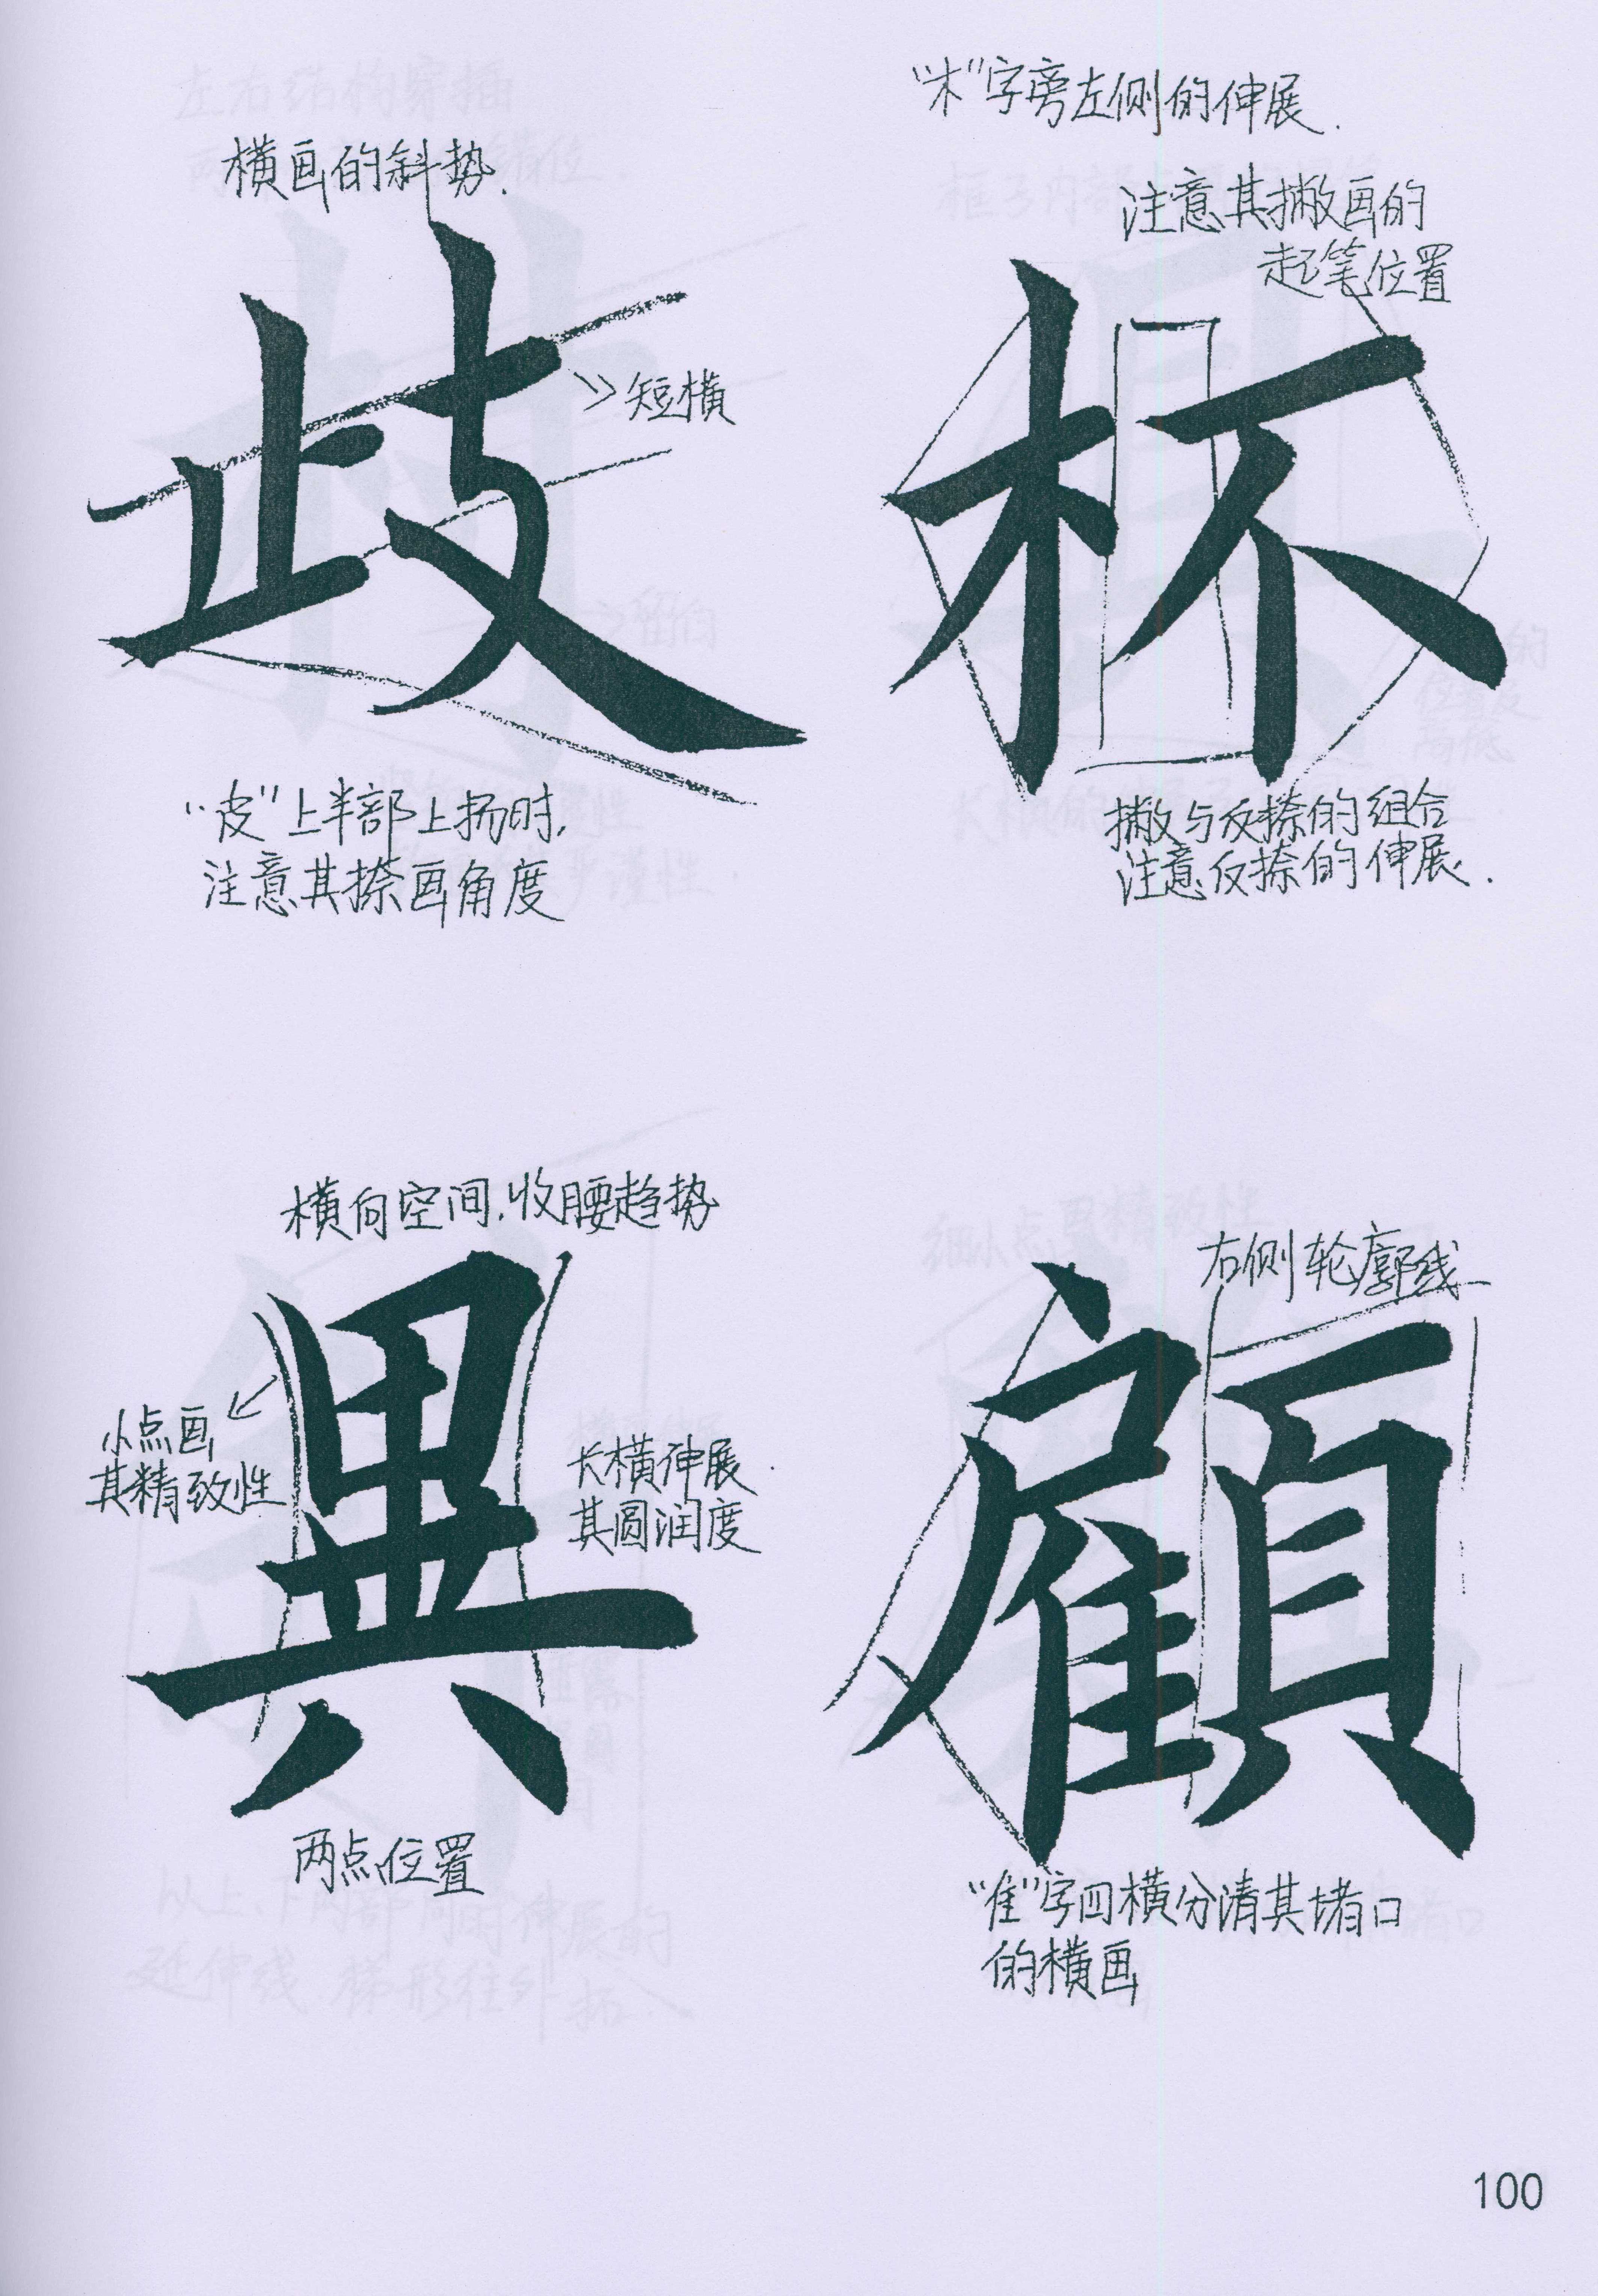 横画的斜势.
歧
短横
“皮”上半部上扬时,
注意其捺画角度
“木”字旁左侧的伸展.
注意其撇画的
起笔位置
杯
撇与反捺的组合
注意反捺的伸展.
横向空间.收腰趋势
異
小点画
其精致性
长横伸展.
其圆润度
两点位置
右侧轮廓线
顧
“隹”字四横分清其堵口
的横画
100